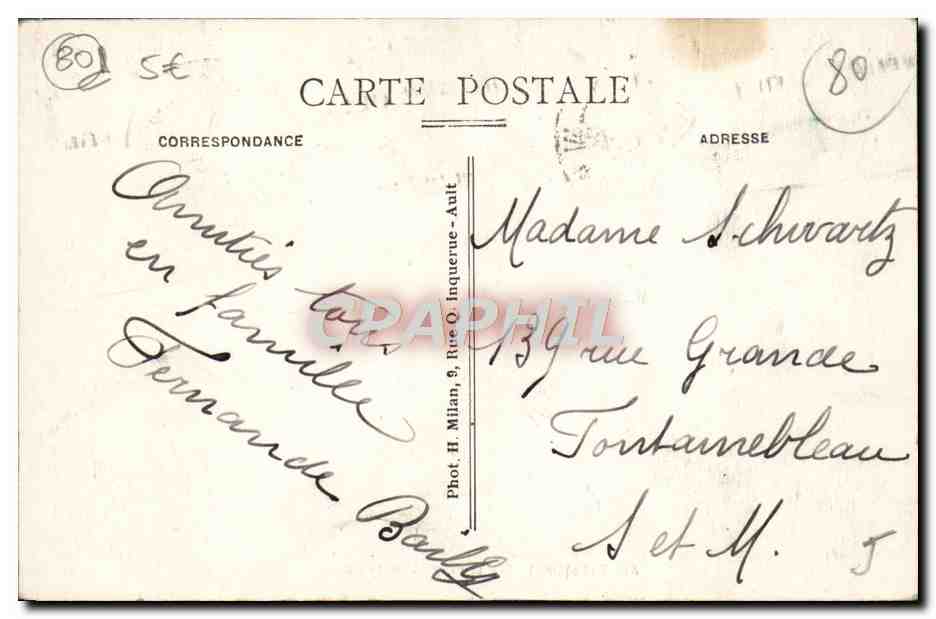 80
5€
80
CARTE POSTALE
CORRESPONDANCE
ADRESSE
Amitiés tous
en famille
Fernande Bailly
Phot. H. Milan, 9, Rue Q. Inquerue - Ault
CPAPHIL
Madame Schwartz
139 rue Grande
Fontainebleau
S et M.
5